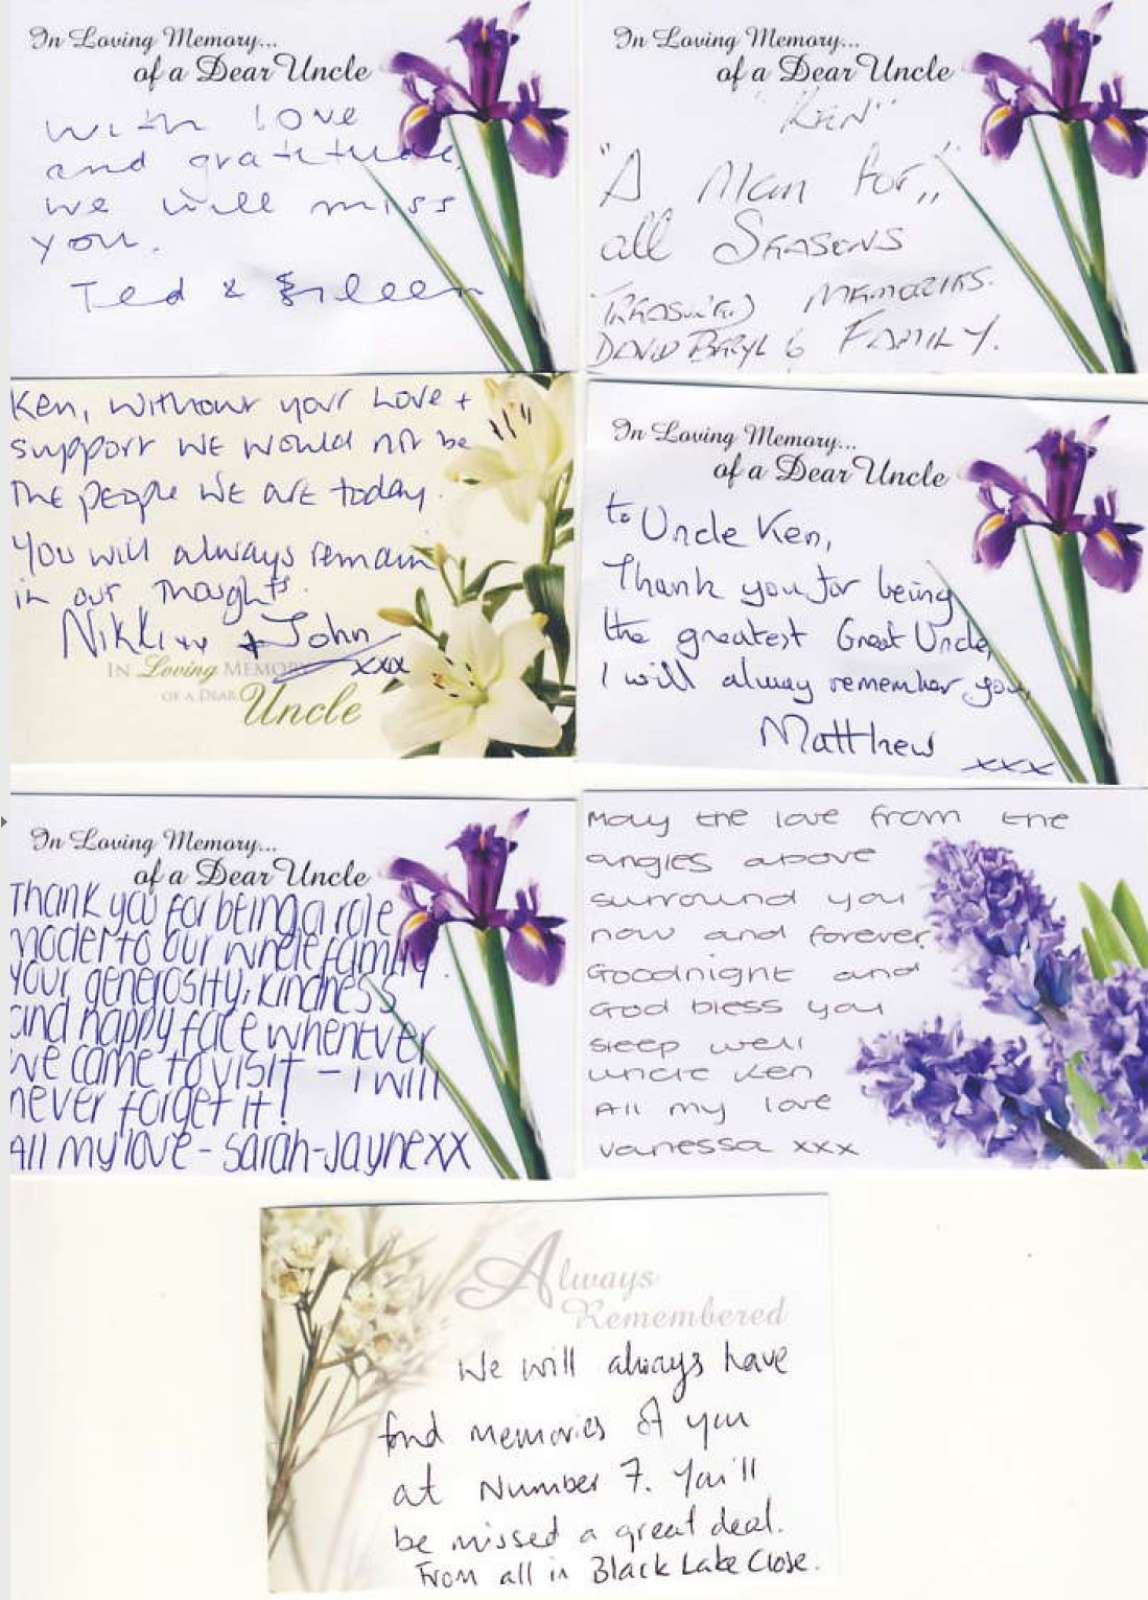 In Loving Memory...
of a Dear Uncle
With love
and gratitude
we will miss
you.
Ted & Eileen
In Loving Memory...
of a Dear Uncle
"Ken"
"A Man for
all Seasons"
Treasured Memories.
David Beryl & Family.
Ken, without your Love +
support we would not be
the people we are today.
You will always remain
in our thoughts.
Nikki xx + John
xxx
In Loving Memory
of a Dear
Uncle
In Loving Memory...
of a Dear Uncle
to Uncle Ken,
Thank you for being
the greatest Great Uncle,
I will alway remember you,
Matthew
xxx
In Loving Memory...
of a Dear Uncle
Thank you for being a role
model to our whole family.
Your generosity, kindness
and happy face whenever
we came to visit - I will
never forget it!
All my love - Sarah-Jayne xx
May the love from the
angles above
surround you
now and forever
Goodnight and
God bless you
sleep well
uncle Ken
All my love
Vanessa xxx
Always
Remembered
We will always have
fond memories of you
at Number 7. You'll
be missed a great deal.
From all in Black Lake Close.